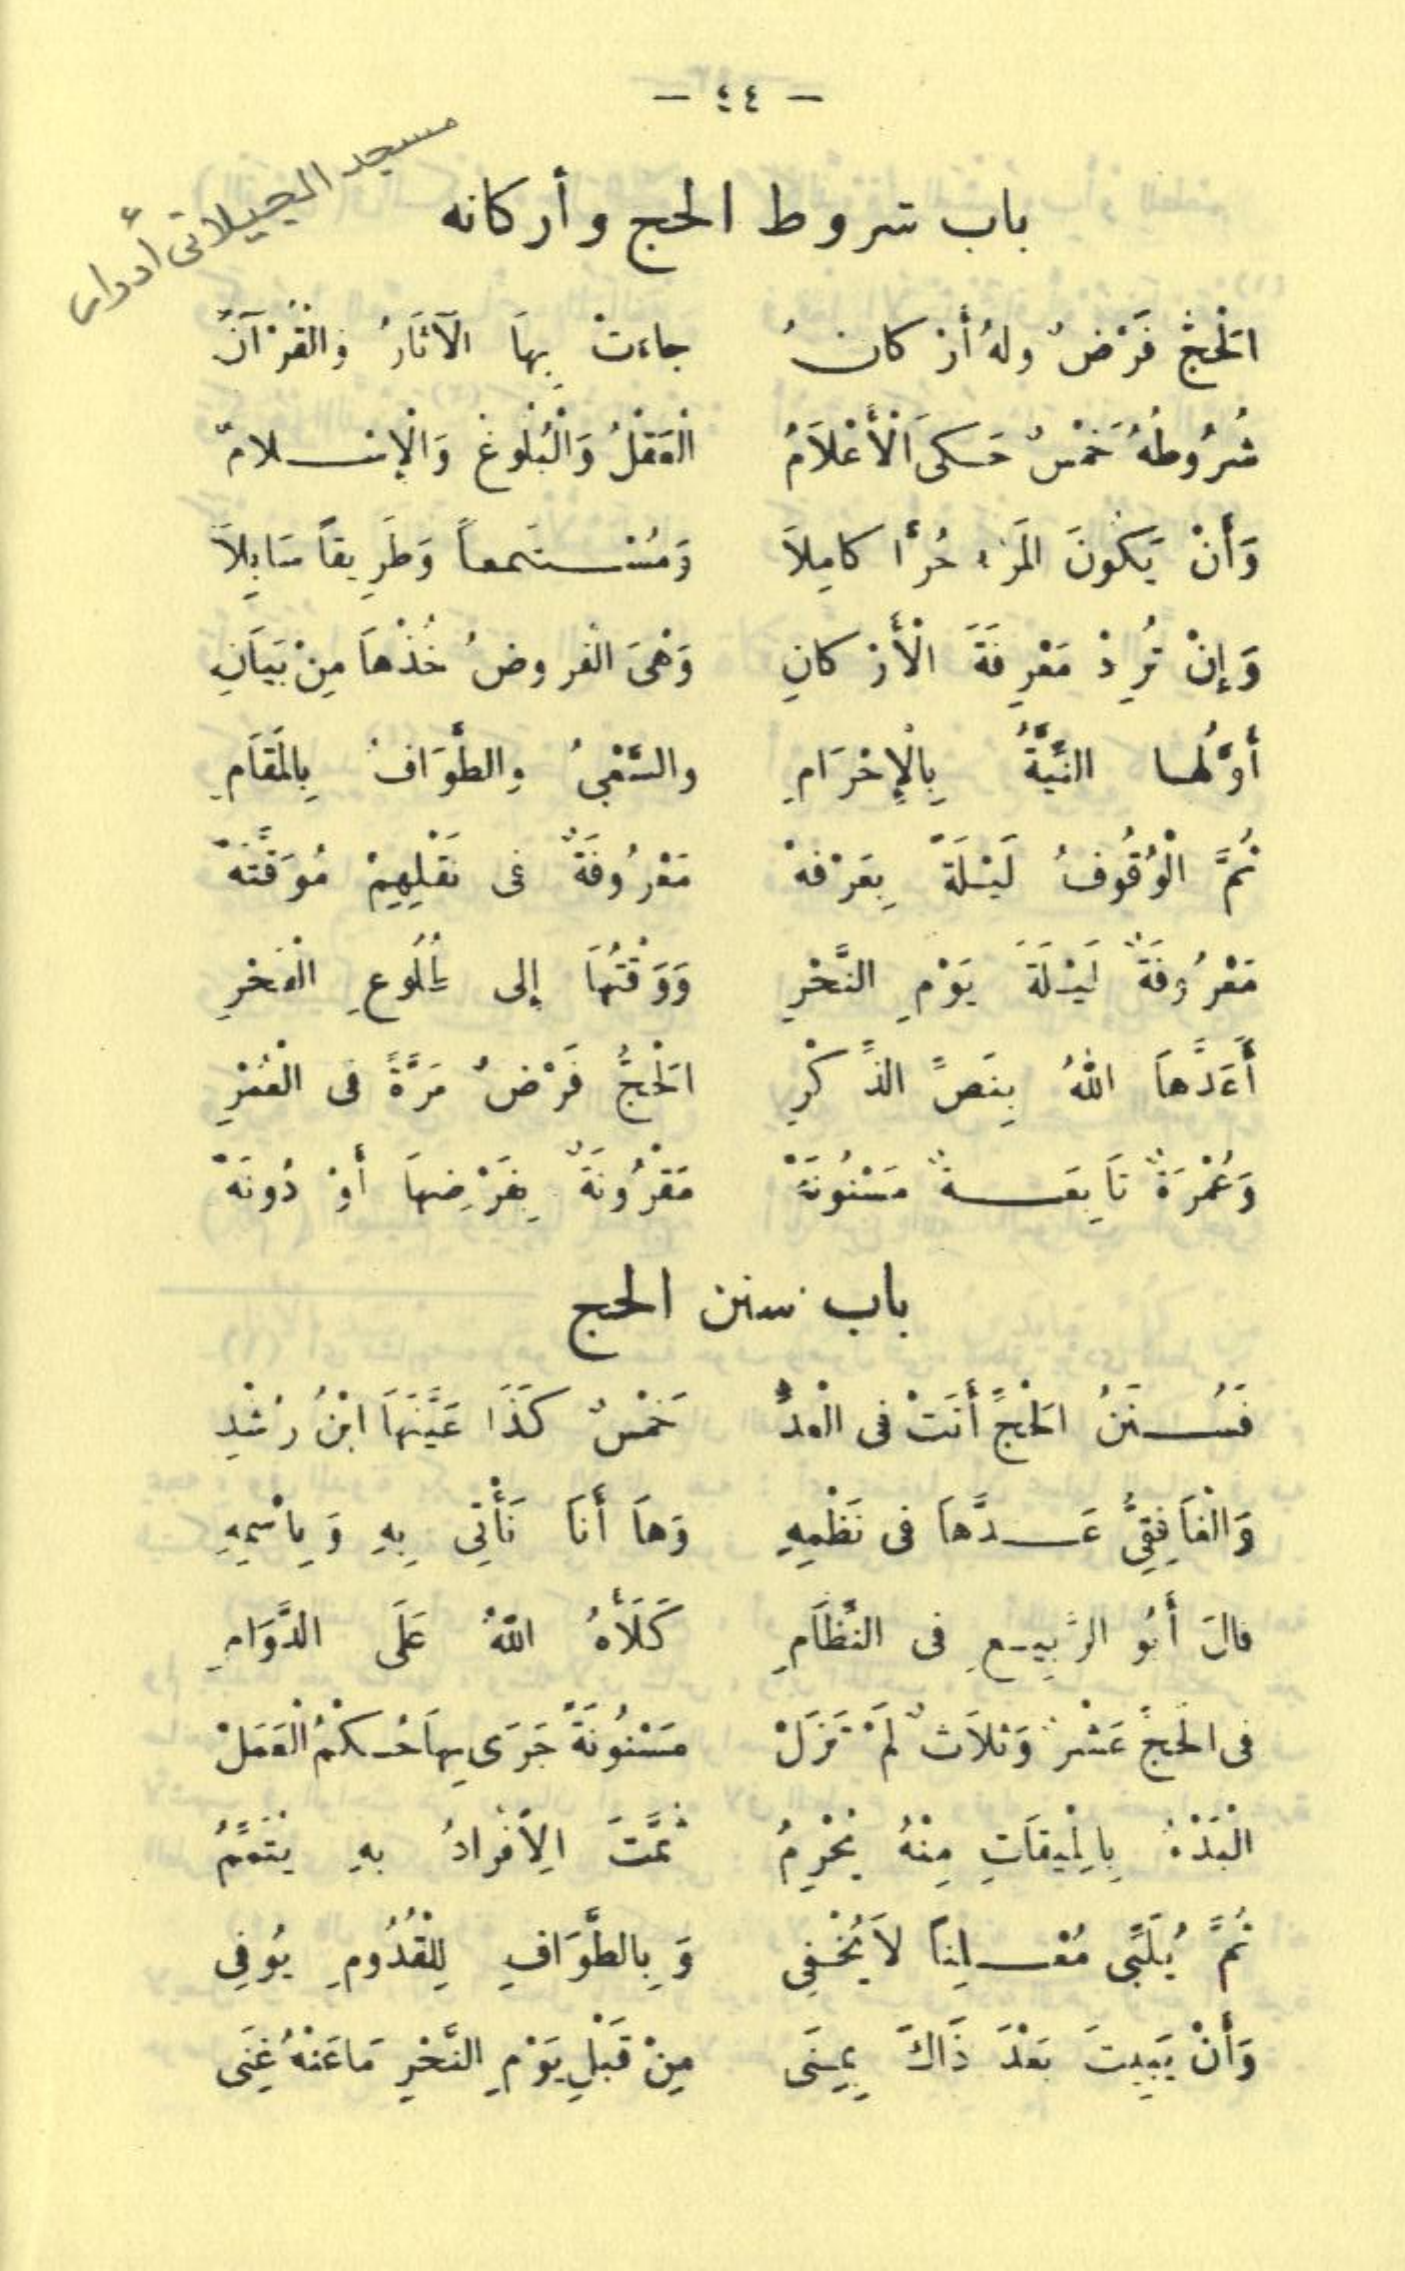 — ٤٤ —
مسجد الجيلاني أدوار
باب شروط الحج وأركانه
اَلْحَجُّ فَرْضٌ ولهُ أرْكانُ جاءتْ بِهاَ الآثَارُ وَالْقُرْآنُ
شُرُوطُهُ خَمْسٌ حَكىَ الْأَعْلاَمُ الْعَقْلُ وَالْبُلُوغُ وَالْإِسْلامُ
وَأَنْ يَكُونَ المَرْء حُرًّا كامِلاَ وَمُسْتَمعاً وَطَرِيقاً سَابِلاَ
وَإِنْ تُرِدْ مَعْرِفَةَ الْأَرْكانِ وَهْىَ الْفروضُ خُذْهاَ مِنْ بَيَانِ
أَوَّلُهـا النِّيَّةُ بِالْإِحْرَامِ والسَّعْىُ والطَّوَافُ بِالمَقاَمِ
ثُمَّ الْوُقُوفُ لَيْلَةً بِعَرْفهْ مَعْرُوفَةٌ فى نَقْلِهِمْ مُوَقَّتَهْ
مَعْرُوفَةٌ لَيْلَةَ يَوْمِ النَّحْرِ وَوَقْتُهَا إلى طُلُوعِ الْفَجْرِ
أَعَدَّهاَ اللهُ بِنَصِّ الذِّكْرِ الْحَجُّ فَرْضٌ مَرَّةً فى الْعُمْرِ
وَعُمْرَةٌ تاَبِعَةٌ مَسْنُونَهْ مَقْرُونَةٌ بِفَرْضِهاَ أَوْ دُونَهْ
باب سنن الحج
فَسُنَنُ الْحَجِّ أَتَتْ فى الْعدِّ خَمْسٌ كَذَا عَيَّنَهاَ ابْنُ رُشْدِ
وَالْغاَفِقِىُّ عَدَّهاَ فى نَظْمِهِ وَهاَ أَنَا نَأْتِى بِهِ وَبِاسْمِهِ
قالَ أَبُو الرَّبِيعِ فى النِّظَامِ كَلَأَهُ اللهُ عَلَى الدَّوَامِ
فى الْحَجِّ عَشْرٌ وَثَلاَثٌ لَمْ تَزَلْ مَسْنُونَةً جَرَى بِهاَ حُكْمُ الْعَمَلْ
الْبَدْءُ بِالْمِيقَاتِ مِنْهُ يُحْرِمُ ثُمَّتَ الِأفْرادُ بهِ يُتَمِّمُ
ثُمَّ يُلَبِّى مُعْلِناً لاَ يُخْفِى وَبِالطَّوَافِ لِلْقُدُومِ يُوفِى
وَأَنْ يَبِيتَ بَعْدَ ذَاكَ بِمِنَى مِنْ قَبْلِ يَوْمِ النَّحْرِ مَا عَنْهُ غِنَى